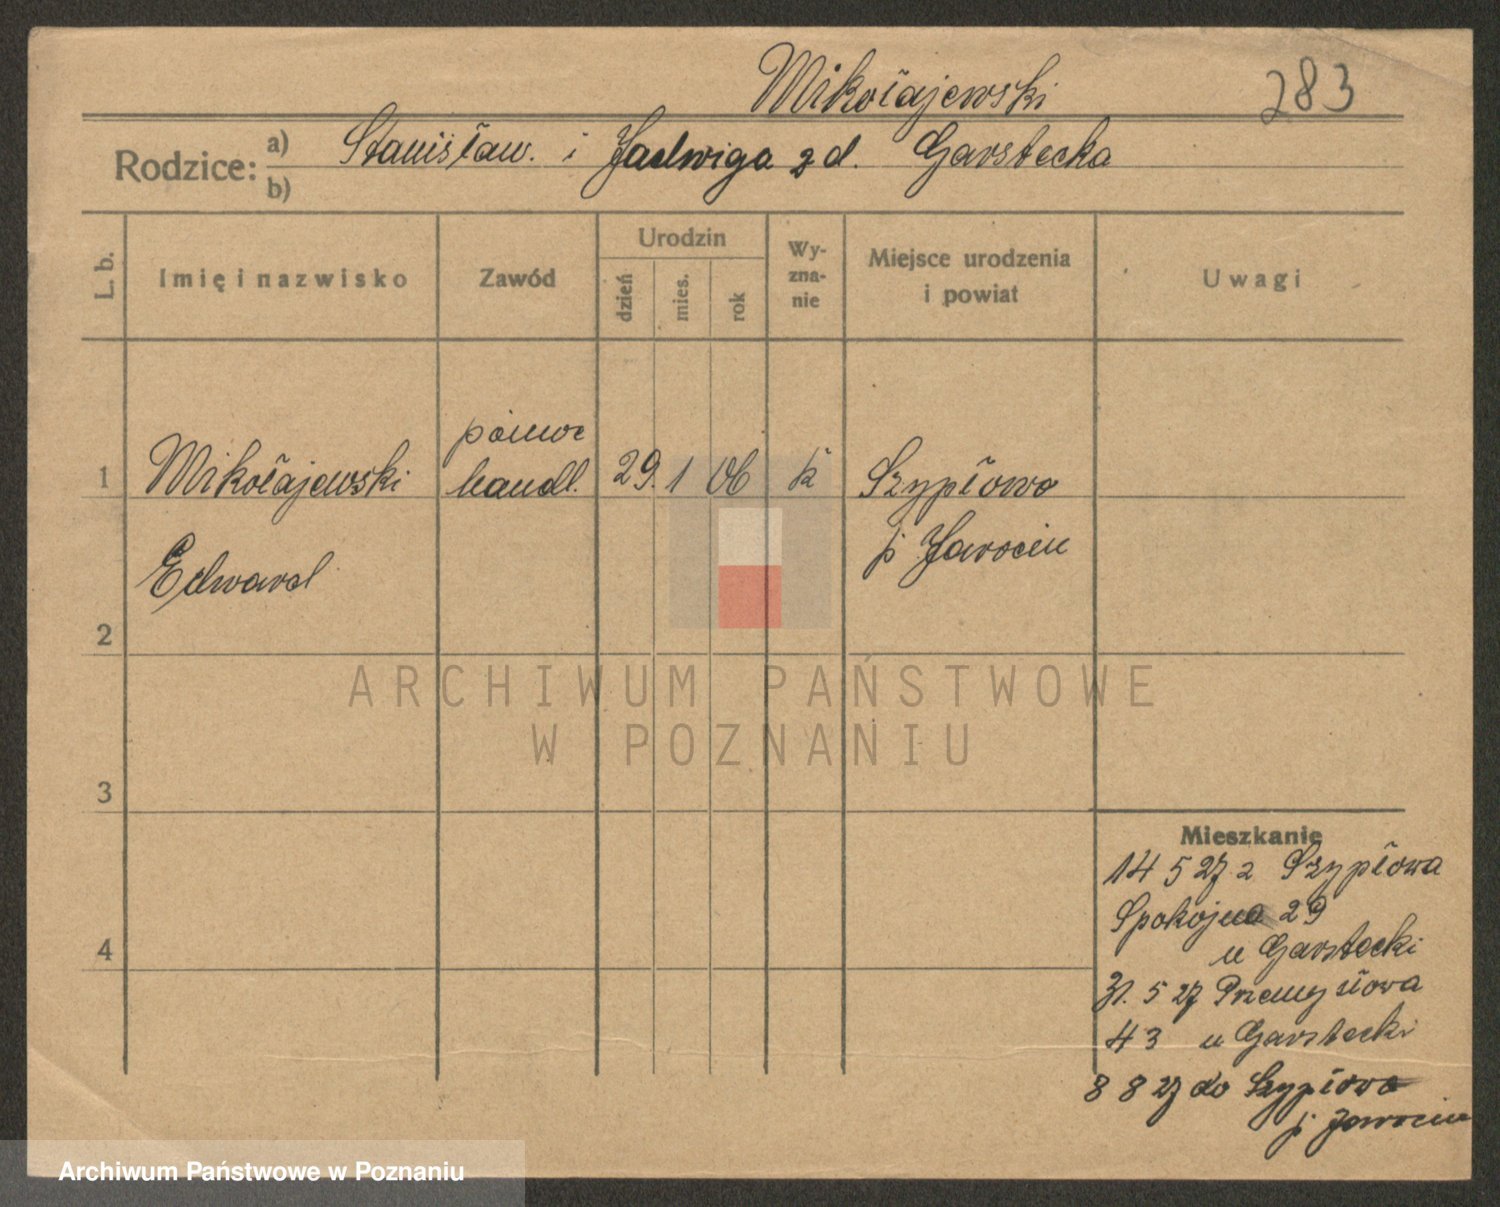 Mikołajewski 283
Rodzice: a) Stanisław. i Jadwiga z d. Garstecka
b)
L. b.
Imię i nazwisko
Zawód
Urodzin
dzień
mies.
rok
Wy-
zna-
nie
Miejsce urodzenia
i powiat
Uwagi
pomoc
1 Mikołajewski handl. 29. 1 06 k Szypłowo
p Jarocin
Edward
2
3
4
Mieszkanie
14 5 27 z Szypłowa
Spokojna 29
u Garstecki
31. 5 27 Przemysłowa
43 u Garstecki
8 8 27 do Szypłowo
p Jarocin
ARCHIWUM PAŃSTWOWE
W POZNANIU
Archiwum Państwowe w Poznaniu